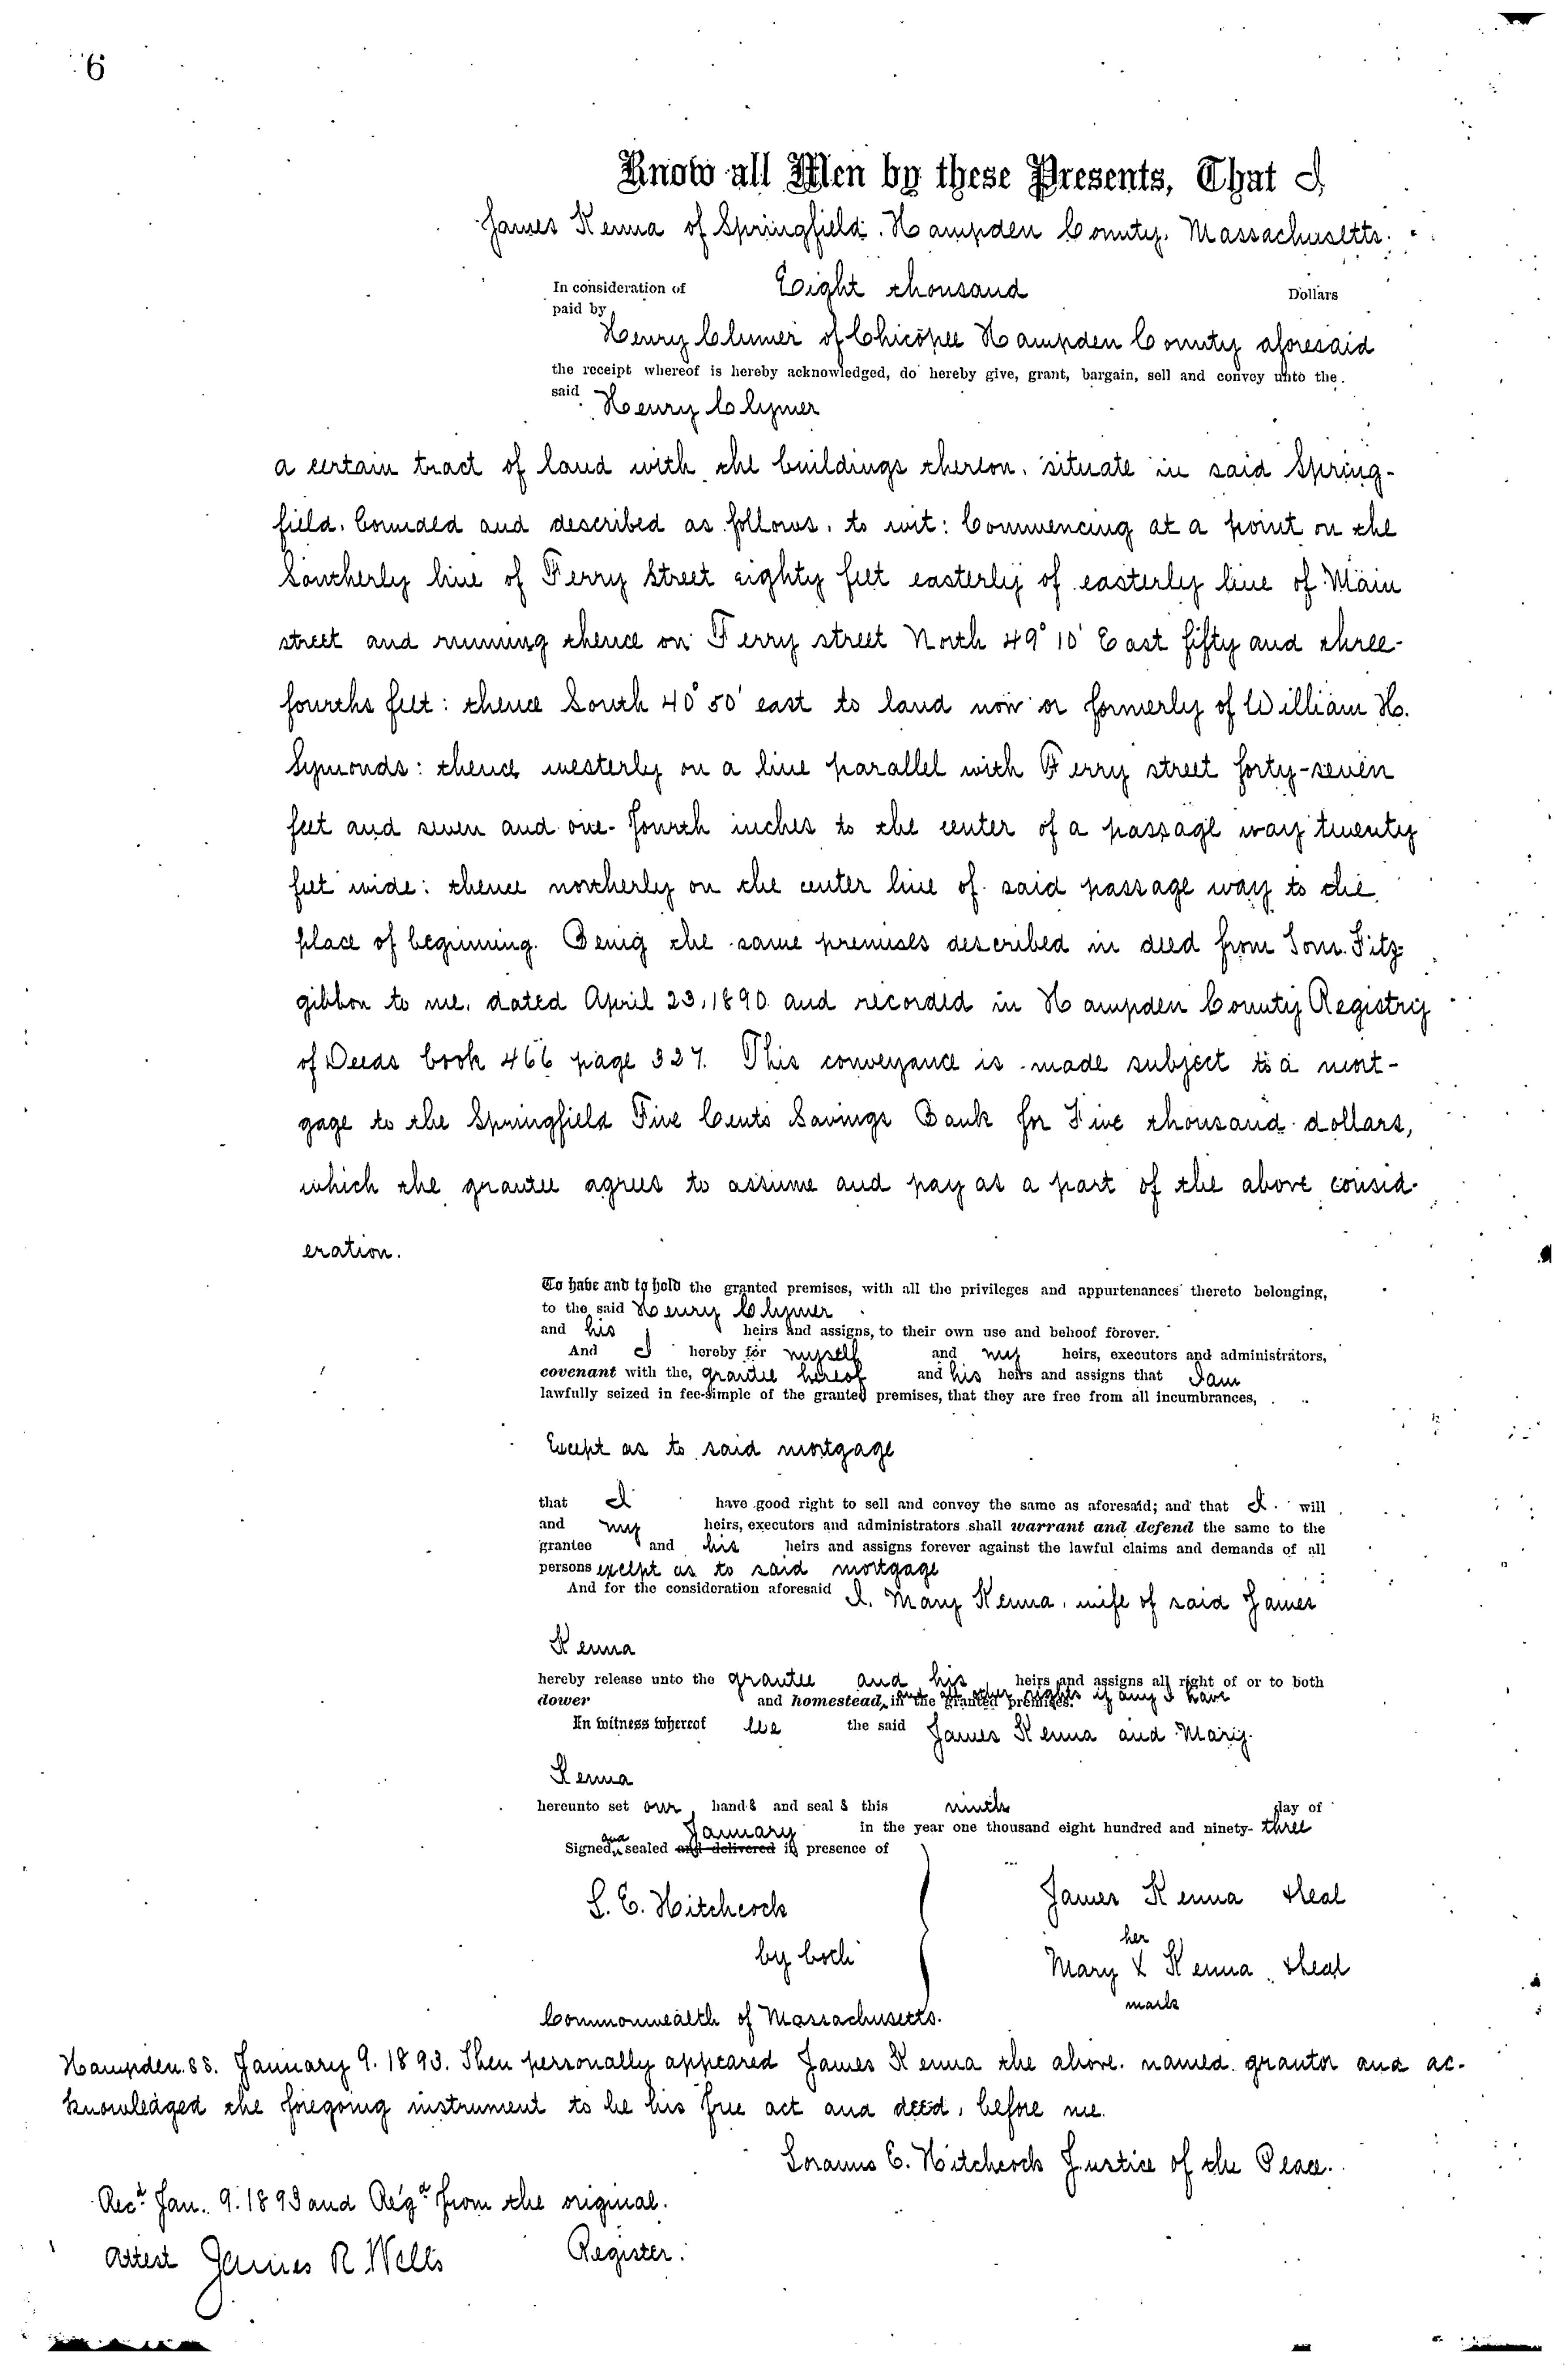 6
Know all Men by these Presents, That I,
James Kenna of Springfield. Hampden County, Massachusetts.
In consideration of Eight thousand Dollars
paid by
Henry Clymer of Chicopee Hampden County aforesaid
the receipt whereof is hereby acknowledged, do hereby give, grant, bargain, sell and convey unto the
said Henry Clymer
a certain tract of land with the buildings thereon, situate in said Spring-
field, bounded and described as follows, to wit: Commencing at a point on the
Southerly line of Ferry Street eighty feet easterly of easterly line of Main
street and running thence on Ferry street North 49° 10' East fifty and three-
fourths feet: thence South 40° 50' east to land now or formerly of William H.
Symonds: thence westerly on a line parallel with Ferry street forty-seven
feet and seven and one-fourth inches to the center of a passage way twenty
feet wide: thence northerly on the center line of said passage way to the
place of beginning. Being the same premises described in deed from Fitz-
gibbon to me, dated April 23, 1890 and recorded in Hampden County Registry
of Deeds book 466 page 327. This conveyance is made subject to a mort-
gage to the Springfield Five Cents Savings Bank for Five thousand dollars,
which the grantee agrees to assume and pay as a part of the above consid-
eration.
To have and to hold the granted premises, with all the privileges and appurtenances thereto belonging,
to the said Henry Clymer
and his heirs and assigns, to their own use and behoof forever.
And I hereby for myself and my heirs, executors and administrators,
covenant with the, grantee hereof and his heirs and assigns that I am
lawfully seized in fee-simple of the granted premises, that they are free from all incumbrances,
Except as to said mortgage
that I have good right to sell and convey the same as aforesaid; and that I will
and my heirs, executors and administrators shall warrant and defend the same to the
grantee and his heirs and assigns forever against the lawful claims and demands of all
persons except as to said mortgage
And for the consideration aforesaid I, Mary Kenna, wife of said James
Kenna
hereby release unto the grantee and his heirs and assigns all right of or to both
dower and homestead, in the granted premises. and all other rights if any I have
In witness whereof we the said James Kenna and Mary
Kenna
hereunto set our hands and seals this ninth day of
January in the year one thousand eight hundred and ninety-three
Signed and sealed and delivered in presence of
L. E. Hitchcock
by both
James Kenna Seal
her
Mary X Kenna Seal
mark
Commonwealth of Massachusetts.
Hampden. ss. January 9. 1893. Then personally appeared James Kenna the above named grantor and ac-
knowledged the foregoing instrument to be his free act and deed, before me.
Loranus E. Hitchcock Justice of the Peace.
Recd Jan. 9. 1893 and Regd from the original.
Attest James R. Wells Register.